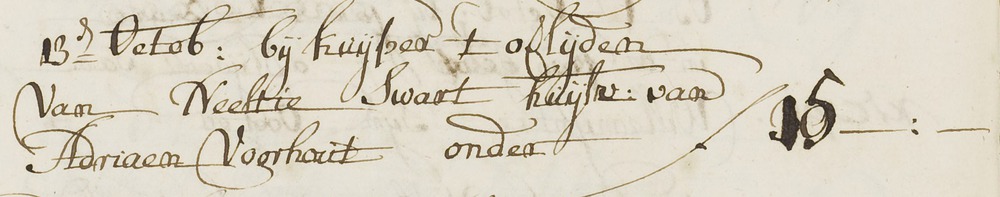 13d Octob: bij kuijper t oflijden
van Neeltie Swart huijsv: van
Adriaen Voorhout onder / 15 — : —